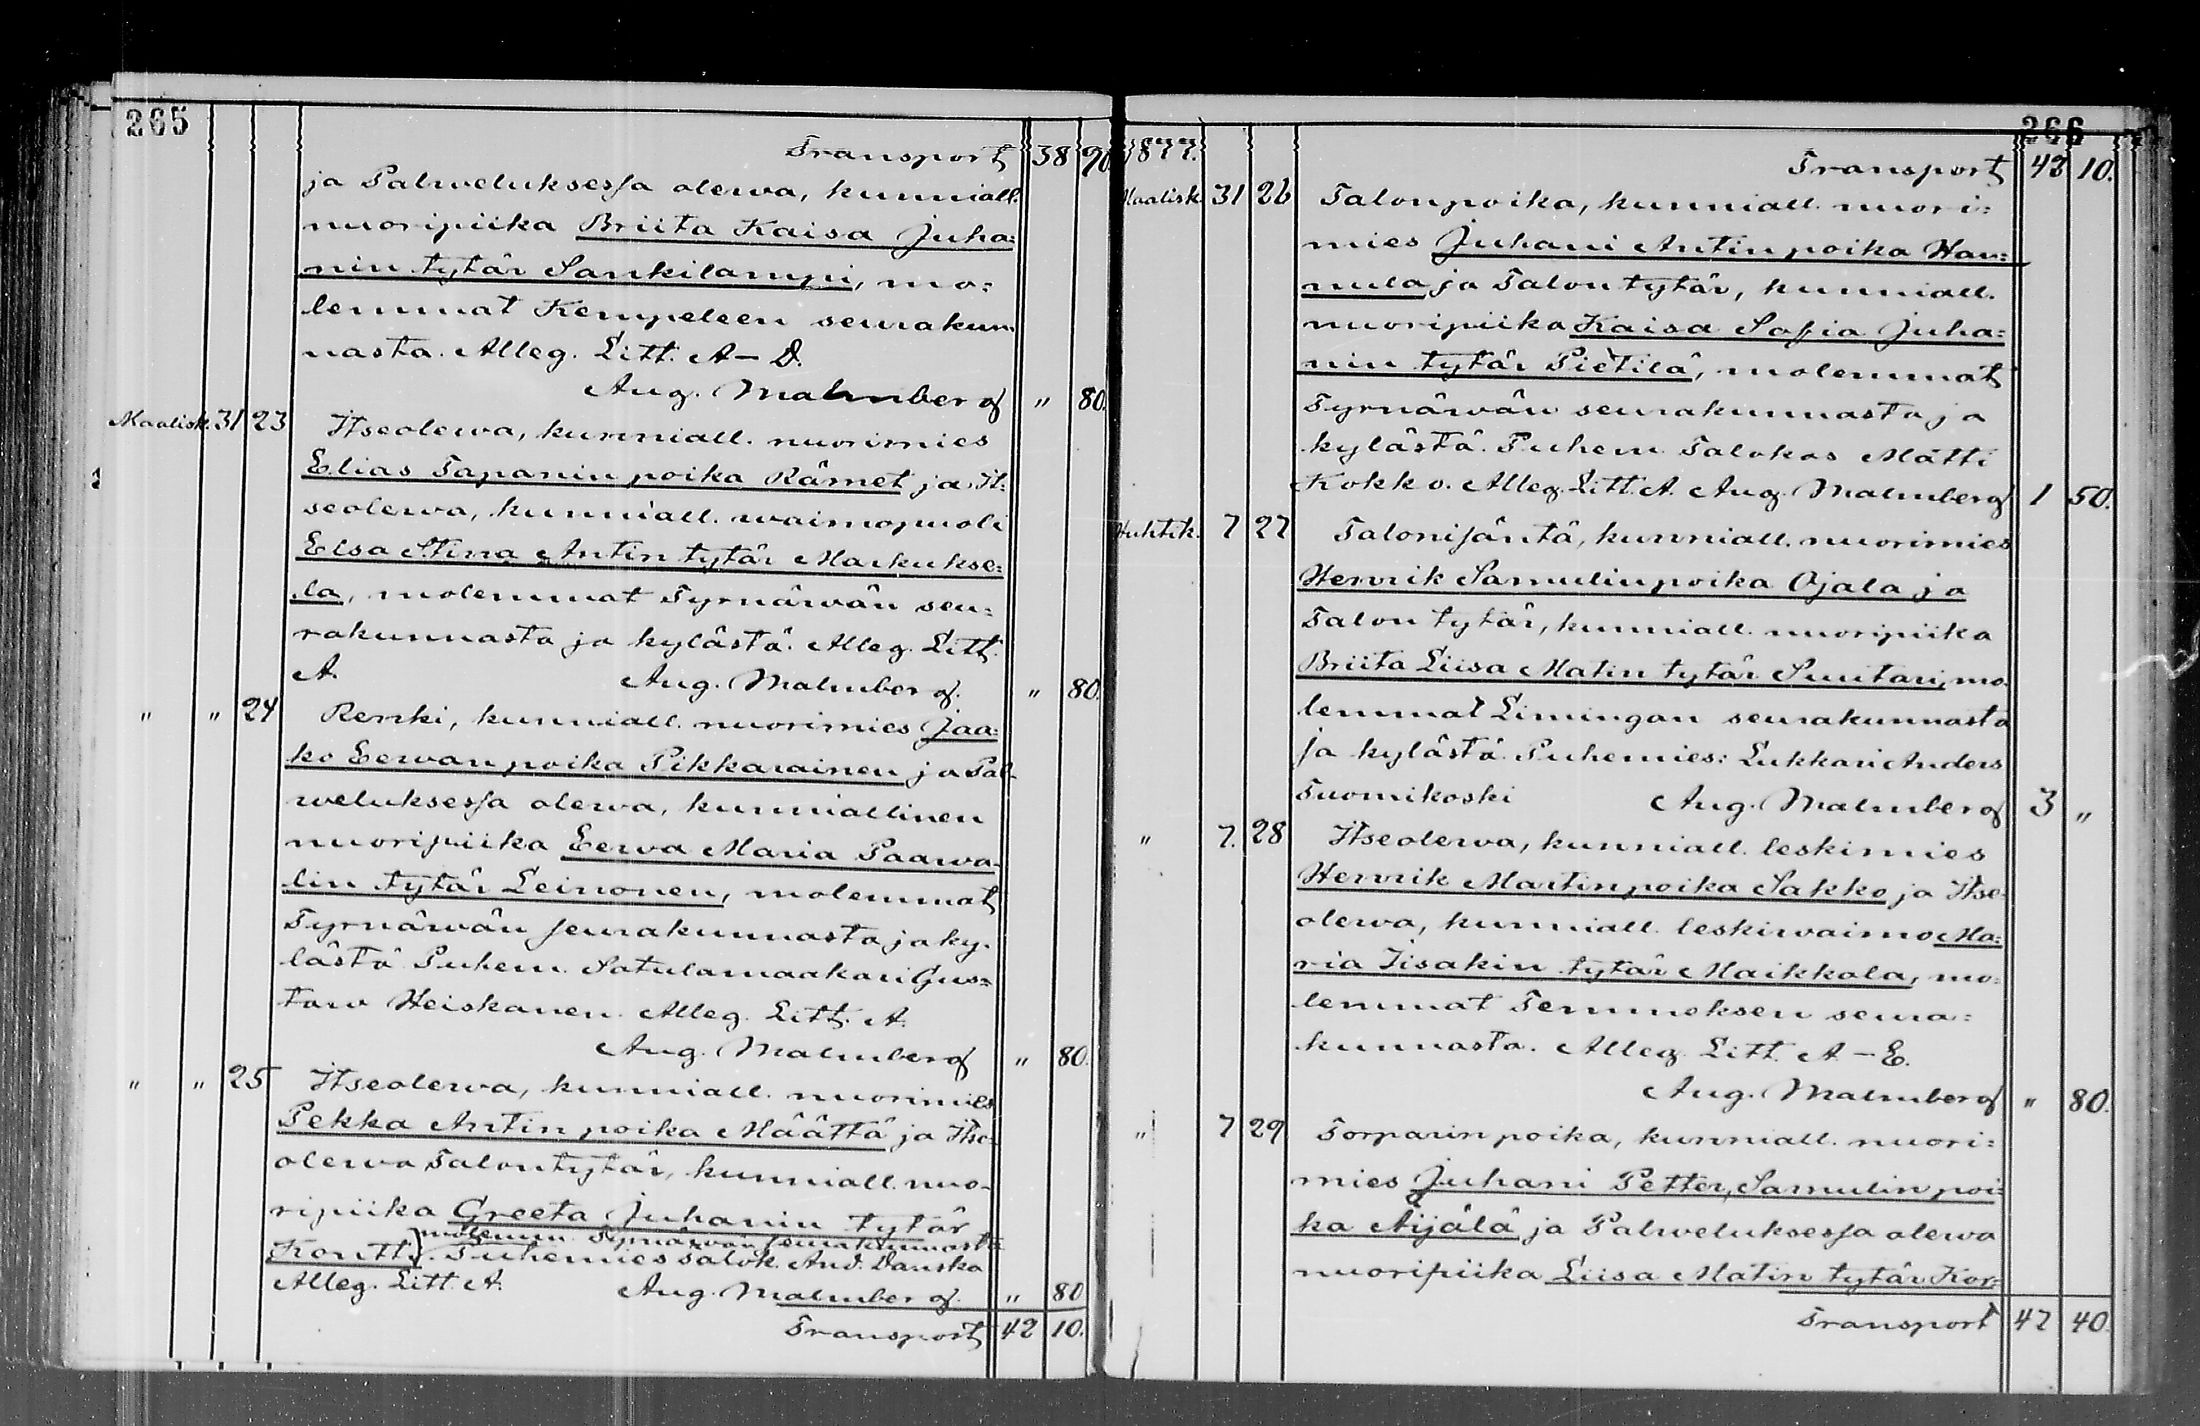 265
Transport 38 90.
ja Palweluksessa olewa, kunniall.
nuoripiika Briita Kaisa Juha=
nin tytär Sankilampi, mo=
lemmat Kempeleen seurakun
nasta. Alleg. Litt. A–D.
Aug. Malmberg " 80.
Maalisk. 31 23 Itseolewa, kunniall. nuorimies
Elias Tapanin poika Rämet ja It=
seolewa, kunniall. waimopuoli
Elsa Stina Antin tytär Markukse=
la, molemmat Tyrnäwän seu=
rakunnasta ja kylästä. Alleg. Litt.
A. Aug. Malmberg. " 80.
" " 24 Renki, kunniall. nuorimies Jaa=
ko Eerwan poika Pikkarainen ja Pal-
weluksessa olewa, kunniallinen
nuoripiika Eerwa Maria Paawa-
lin tytär Leinonen, molemmat
Tyrnäwän seurakunnasta ja ky-
lästä Puhem. Satulamaakari Gus=
taw Heiskanen. Alleg. Litt. A.
Aug. Malmberg " 80.
" " 25 Itseolewa, kunniall. nuorimies
Pekka Antin poika Määttä ja Itse-
olewa Talontytär, kunniall. nuo-
ripiika Greeta Juhanin tytär
molemm. Tyrnäwän seurakunnasta
Kontti, Puhemies Talok. And. Danska
Alleg. Litt. A. Aug. Malmberg. " 80
Transport 42 10.
266
1877. Transport 42 10.
Maalisk. 31 26 Talonpoika, kunniall. nuori=
mies Juhani Antin poika Han=
nula ja Talon tytär, kunniall.
nuoripiika Kaisa Sofia Juha=
nin tytär Pietilä, molemmat
Tyrnäwän seurakunnasta ja
kylästä. Puhem. Talokas Matti
Kokko. Alleg. Litt. A. Aug. Malmberg 1 50.
Huhtik. 7 27 Talonisäntä, kunniall. nuorimies
Henrik Samulin poika Ojala ja
Talon tytär, kunniall. nuoripiika
Briita Liisa Matin tytär Suutari, mo-
lemmat Limingan seurakunnasta
ja kylästä. Puhemies: Lukkari Anders
Tuomikoski Aug. Malmberg 3 "
" 7. 28 Itseolewa, kunniall. leskimies
Henrik Martin poika Sakko ja Itse-
olewa, kunniall. leskiwaimo Ma=
ria Iisakin tytär Maikkala, mo-
lemmat Temmeksen seura=
kunnasta. Alleg. Litt. A–E.
Aug. Malmberg " 80.
" 7 29 Torparin poika, kunniall. nuori=
mies Juhani Petter Samulin poi=
ka Äijälä ja Palweluksessa olewa
nuoripiika Liisa Matin tytär Kor=
Transport 47 40.